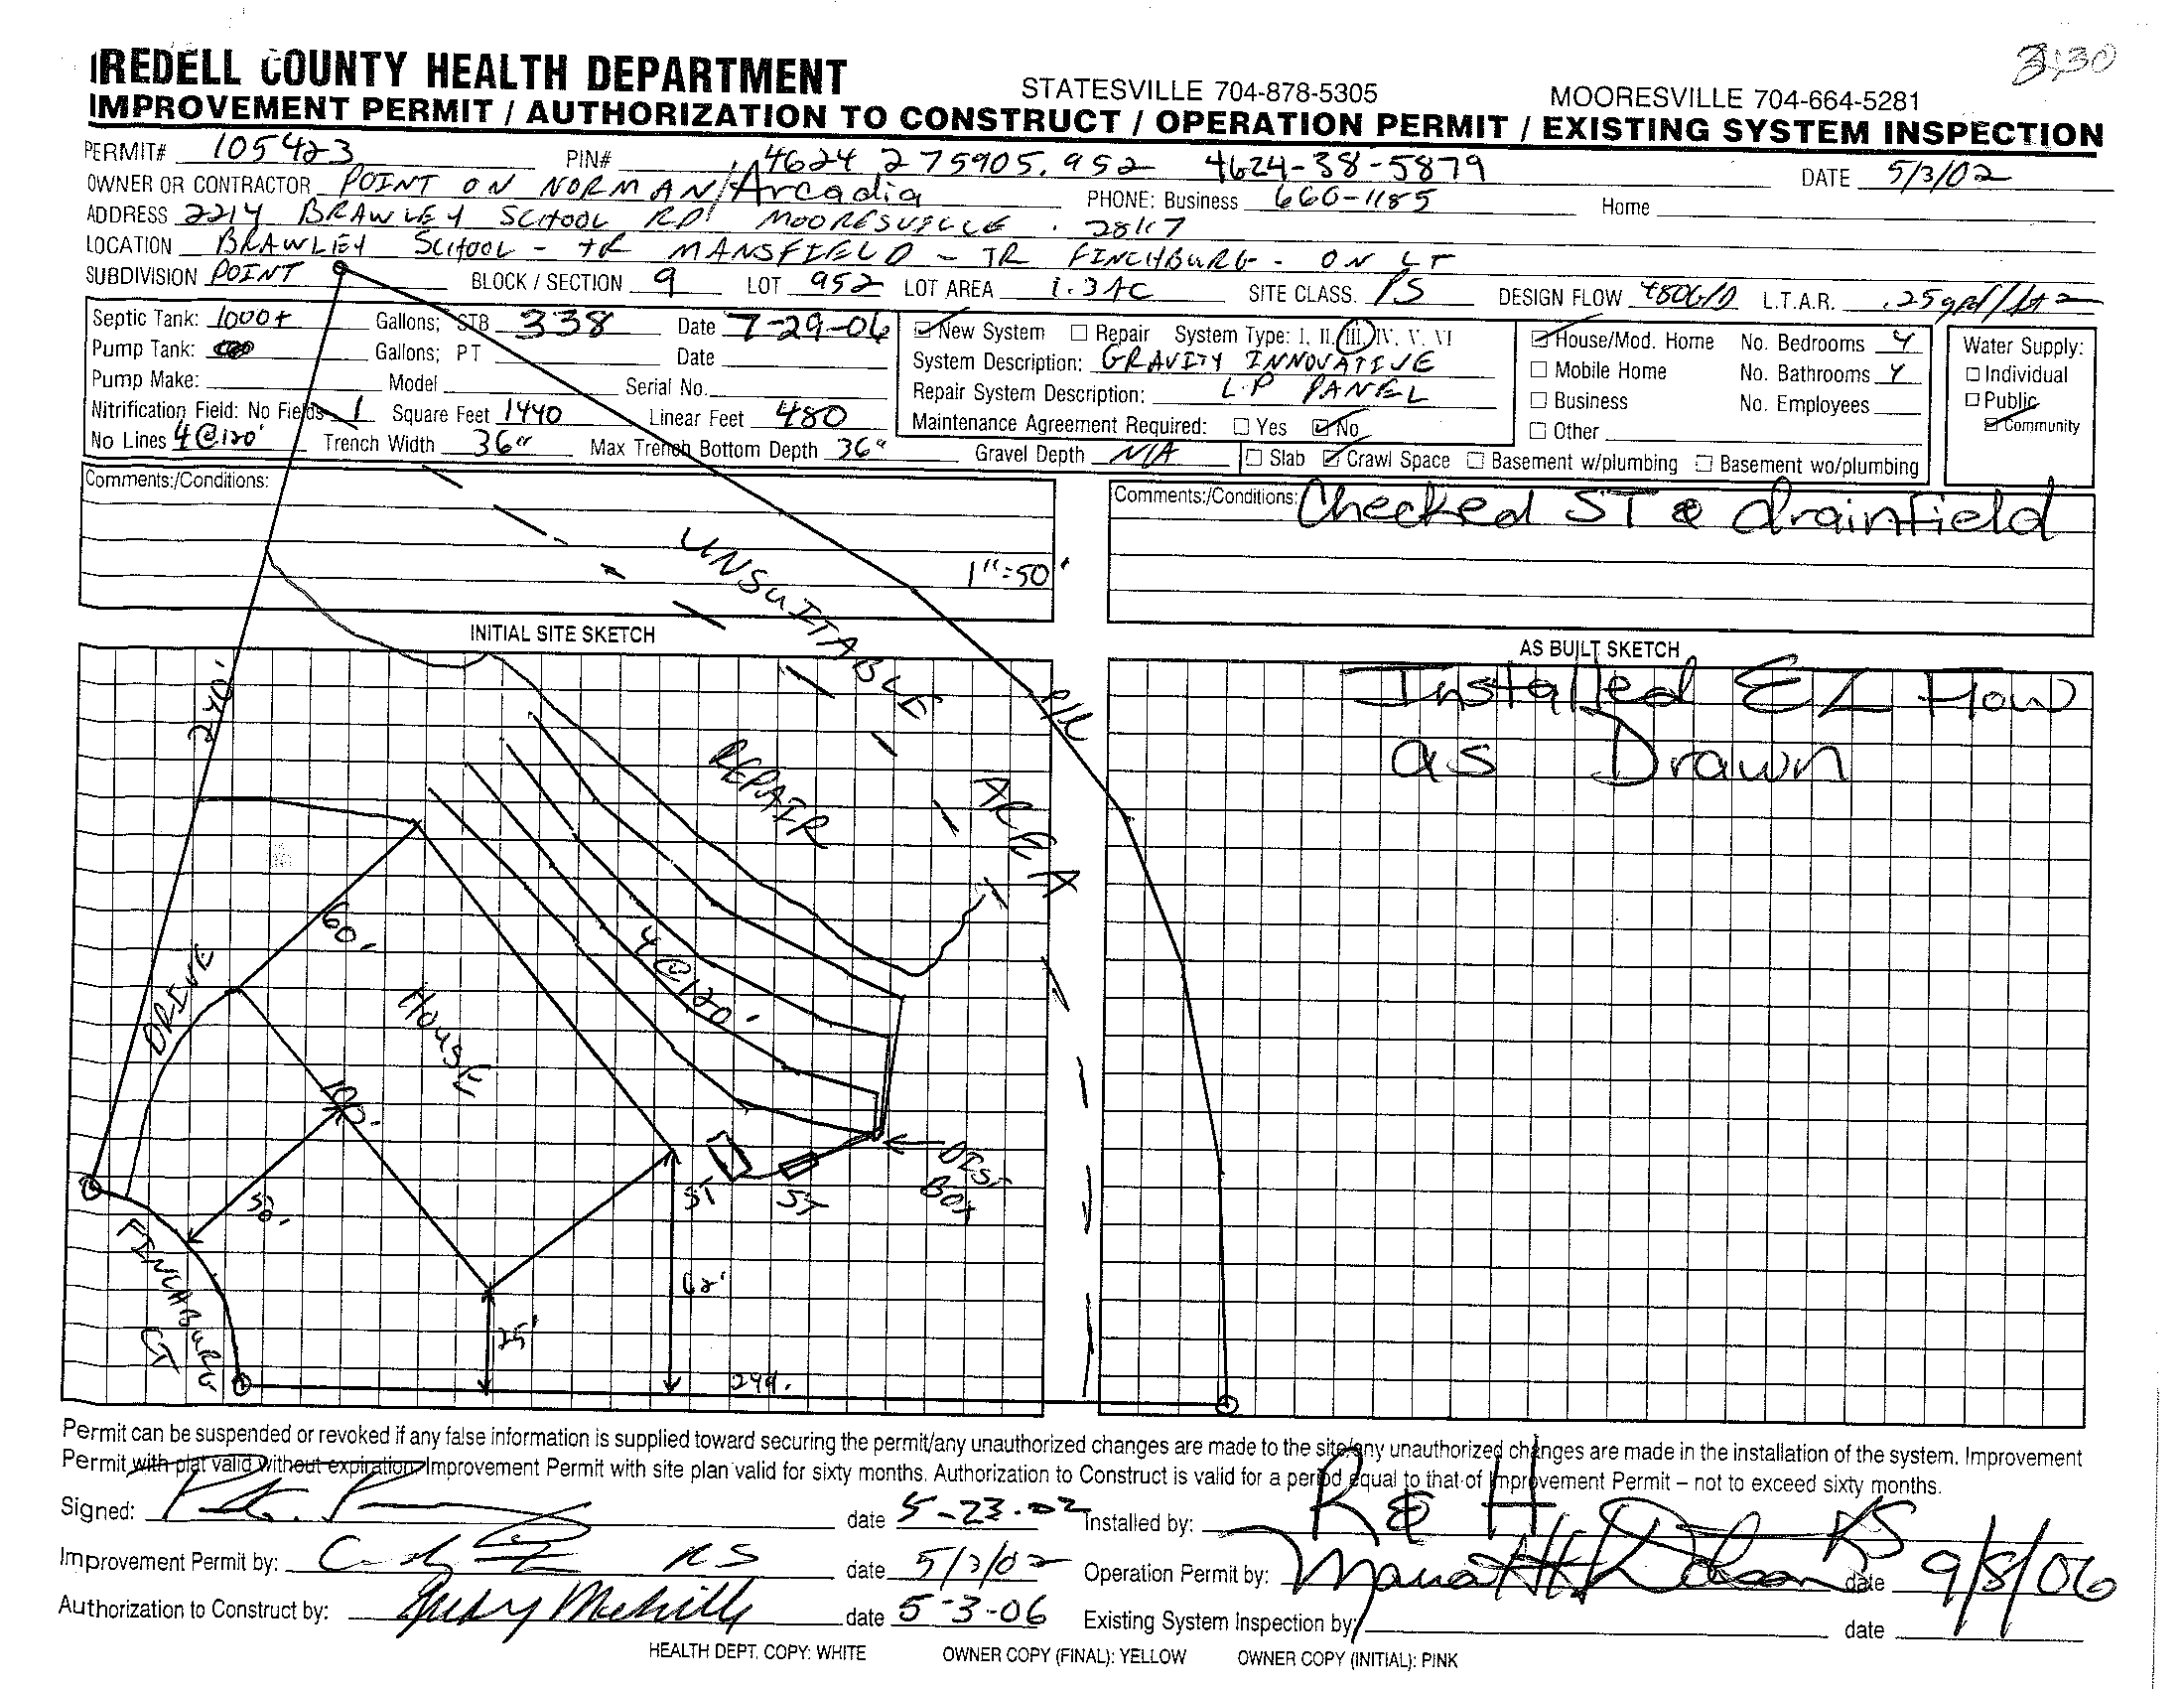 3:30
IREDELL COUNTY HEALTH DEPARTMENT STATESVILLE 704-878-5305 MOORESVILLE 704-664-5281
IMPROVEMENT PERMIT / AUTHORIZATION TO CONSTRUCT / OPERATION PERMIT / EXISTING SYSTEM INSPECTION
PERMIT# 105423 PIN# 4624 275905.952 4624-38-5879 DATE 5/3/02
OWNER OR CONTRACTOR POINT ON NORMAN/Arcadia PHONE: Business 660-1185 Home
ADDRESS 2214 BRAWLEY SCHOOL RD MOORESVILLE 28117
LOCATION BRAWLEY SCHOOL - TR MANSFIELD - TR FINCHBURG - ON LT
SUBDIVISION POINT BLOCK / SECTION 9 LOT 952 LOT AREA 1.3AC SITE CLASS. PS DESIGN FLOW 480G/D L.T.A.R. .25gpd/ft2
Septic Tank: 1000+ Gallons; STB 338 Date 7-29-06
Pump Tank: Gallons; PT Date
Pump Make: Model Serial No.
Nitrification Field: No Fields 1 Square Feet 1440 Linear Feet 480
No Lines 4@120' Trench Width 36" Max Trench Bottom Depth 36" Gravel Depth N/A
New System Repair System Type: I, II, III, IV, V, VI
System Description: GRAVITY INNOVATIVE
Repair System Description: L.P PANEL
Maintenance Agreement Required: Yes No
Slab Crawl Space Basement w/plumbing Basement wo/plumbing
House/Mod. Home No. Bedrooms 4
Mobile Home No. Bathrooms 4
Business No. Employees
Other
Water Supply:
Individual
Public
Community
Comments:/Conditions:
1"=50'
Comments:/Conditions: Checked ST & drainfield
INITIAL SITE SKETCH
AS BUILT SKETCH
Installed EZ Flow
as Drawn
UNSUITABLE AREA
P/L
240'
REPAIR
60'
4@120'
DRIVE
HOUSE
100'
50'
ST
ST
DIST
BOX
62'
25'
FINCHBURG
CT
294'
Permit can be suspended or revoked if any false information is supplied toward securing the permit/any unauthorized changes are made to the site/any unauthorized changes are made in the installation of the system. Improvement
Permit with plat valid without expiration/Improvement Permit with site plan valid for sixty months. Authorization to Construct is valid for a period equal to that of Improvement Permit – not to exceed sixty months.
Signed: date 5-23-02 Installed by: R & H
Improvement Permit by: RS date 5/3/02 Operation Permit by: RS date 9/8/06
Authorization to Construct by: date 5-3-06 Existing System Inspection by: date
HEALTH DEPT. COPY: WHITE OWNER COPY (FINAL): YELLOW OWNER COPY (INITIAL): PINK